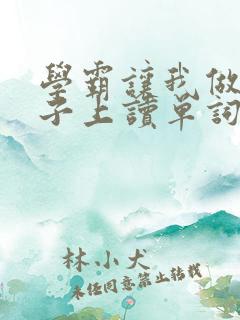 學霸讓我做
子上讀單詞
林小犬
未經同意禁止轉載